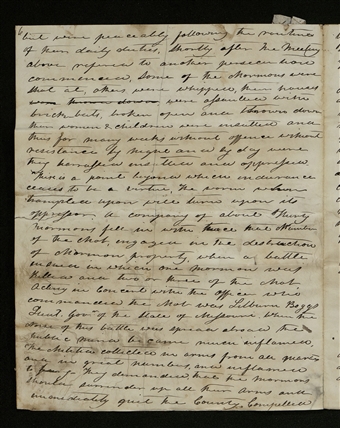 but were peaceably following the routine
of their daily duties. Shortly after the Meeting
above refered to another persecution
commenced, Some of the Mormons were
shot at, others were whipped, their houses
were thrown down were assaulted with
brick bats, broken open and thrown down
their women & children were insulted and
thus for many weeks without offence without
resistance by night and by day were
they harrassed and oppressed
There is a point beyond which endurance
ceases to be a virtue. The worm when
trampled upon will turn upon its
oppressor. A company of about thirty
Mormons fell in with twice that Number
of the Mob, engaged in the destruction
of Mormon property, when a battle
ensued in which one Mormon was
Killed and two or three of the Mob.
Acting in Concert with the officer who
commanded the Mob was Lilburn Boggs
Lieut. Gov. of the State of Missouri. When the
news of this battle was spread abroad the
public mind became much inflamed.
The Militia collected in arms from all quarters
and in great numbers, and inflamed
to fury. They demanded that the Mormons
should surrender up all their Arms and
immediately quit the County. Compelled